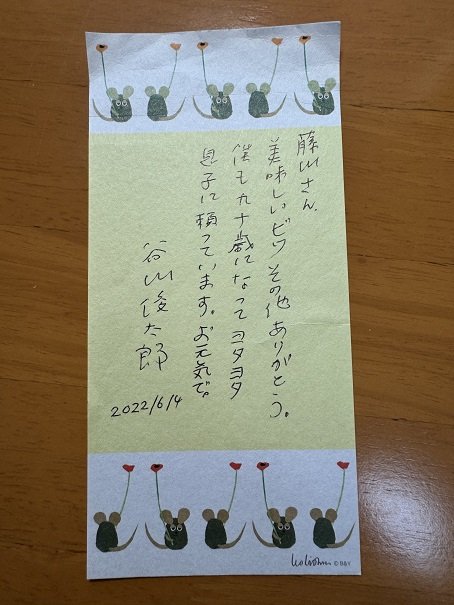 藤山さん、
美味しいビワその他ありがとう。
僕も九十歳になってヨタヨタ
息子に頼っています。お元気で。
谷川俊太郎
2022/6/4